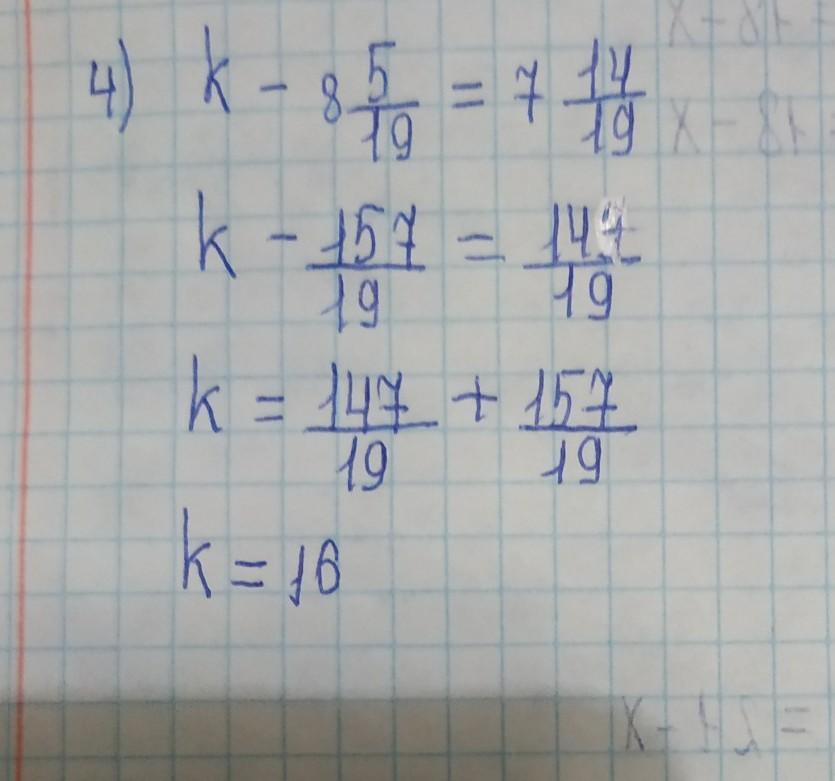 4) k - 8 5/19 = 7 14/19
k - 157/19 = 147/19
k = 147/19 + 157/19
k = 16